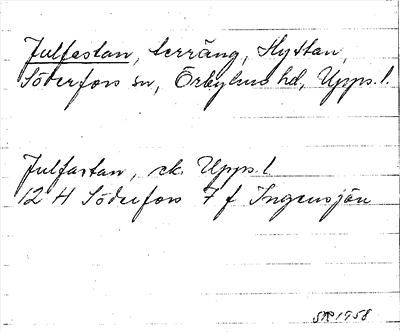 Julfastan, terräng, Hyttan,
Söderfors sn, Örbyhus hd, Upps. l.
Julfastan, ek. Upps. l
12 H Söderfors 7 f Ingensjön
SR 1958